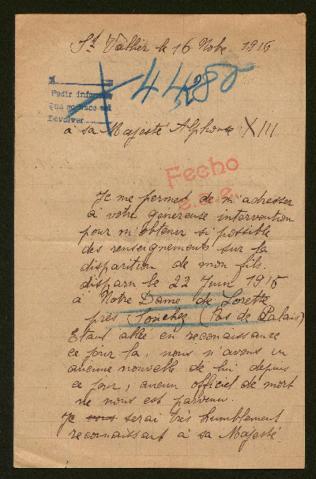 St Vallier le 16 Nbre 1916
44280
Pedir infor
Devolver
à sa Majesté Alphonse XIII
Fecho
Je me permet de m'adresser
à votre genereuse intervention
pour m'obtenir si possible
des renseignements sur la
disparition de mon fils.
disparu le 22 Juin 1915
à Notre Dame de Lorette
près Souchez (Pas de Calais)
Etant allé en reconnaissance
ce jour là, nous n'avons eu
aucune nouvelle de lui, depuis
ce jour, aucun officiel de mort
ne nous est parvenu.
Je serai très humblement
reconnaissant à sa Majesté